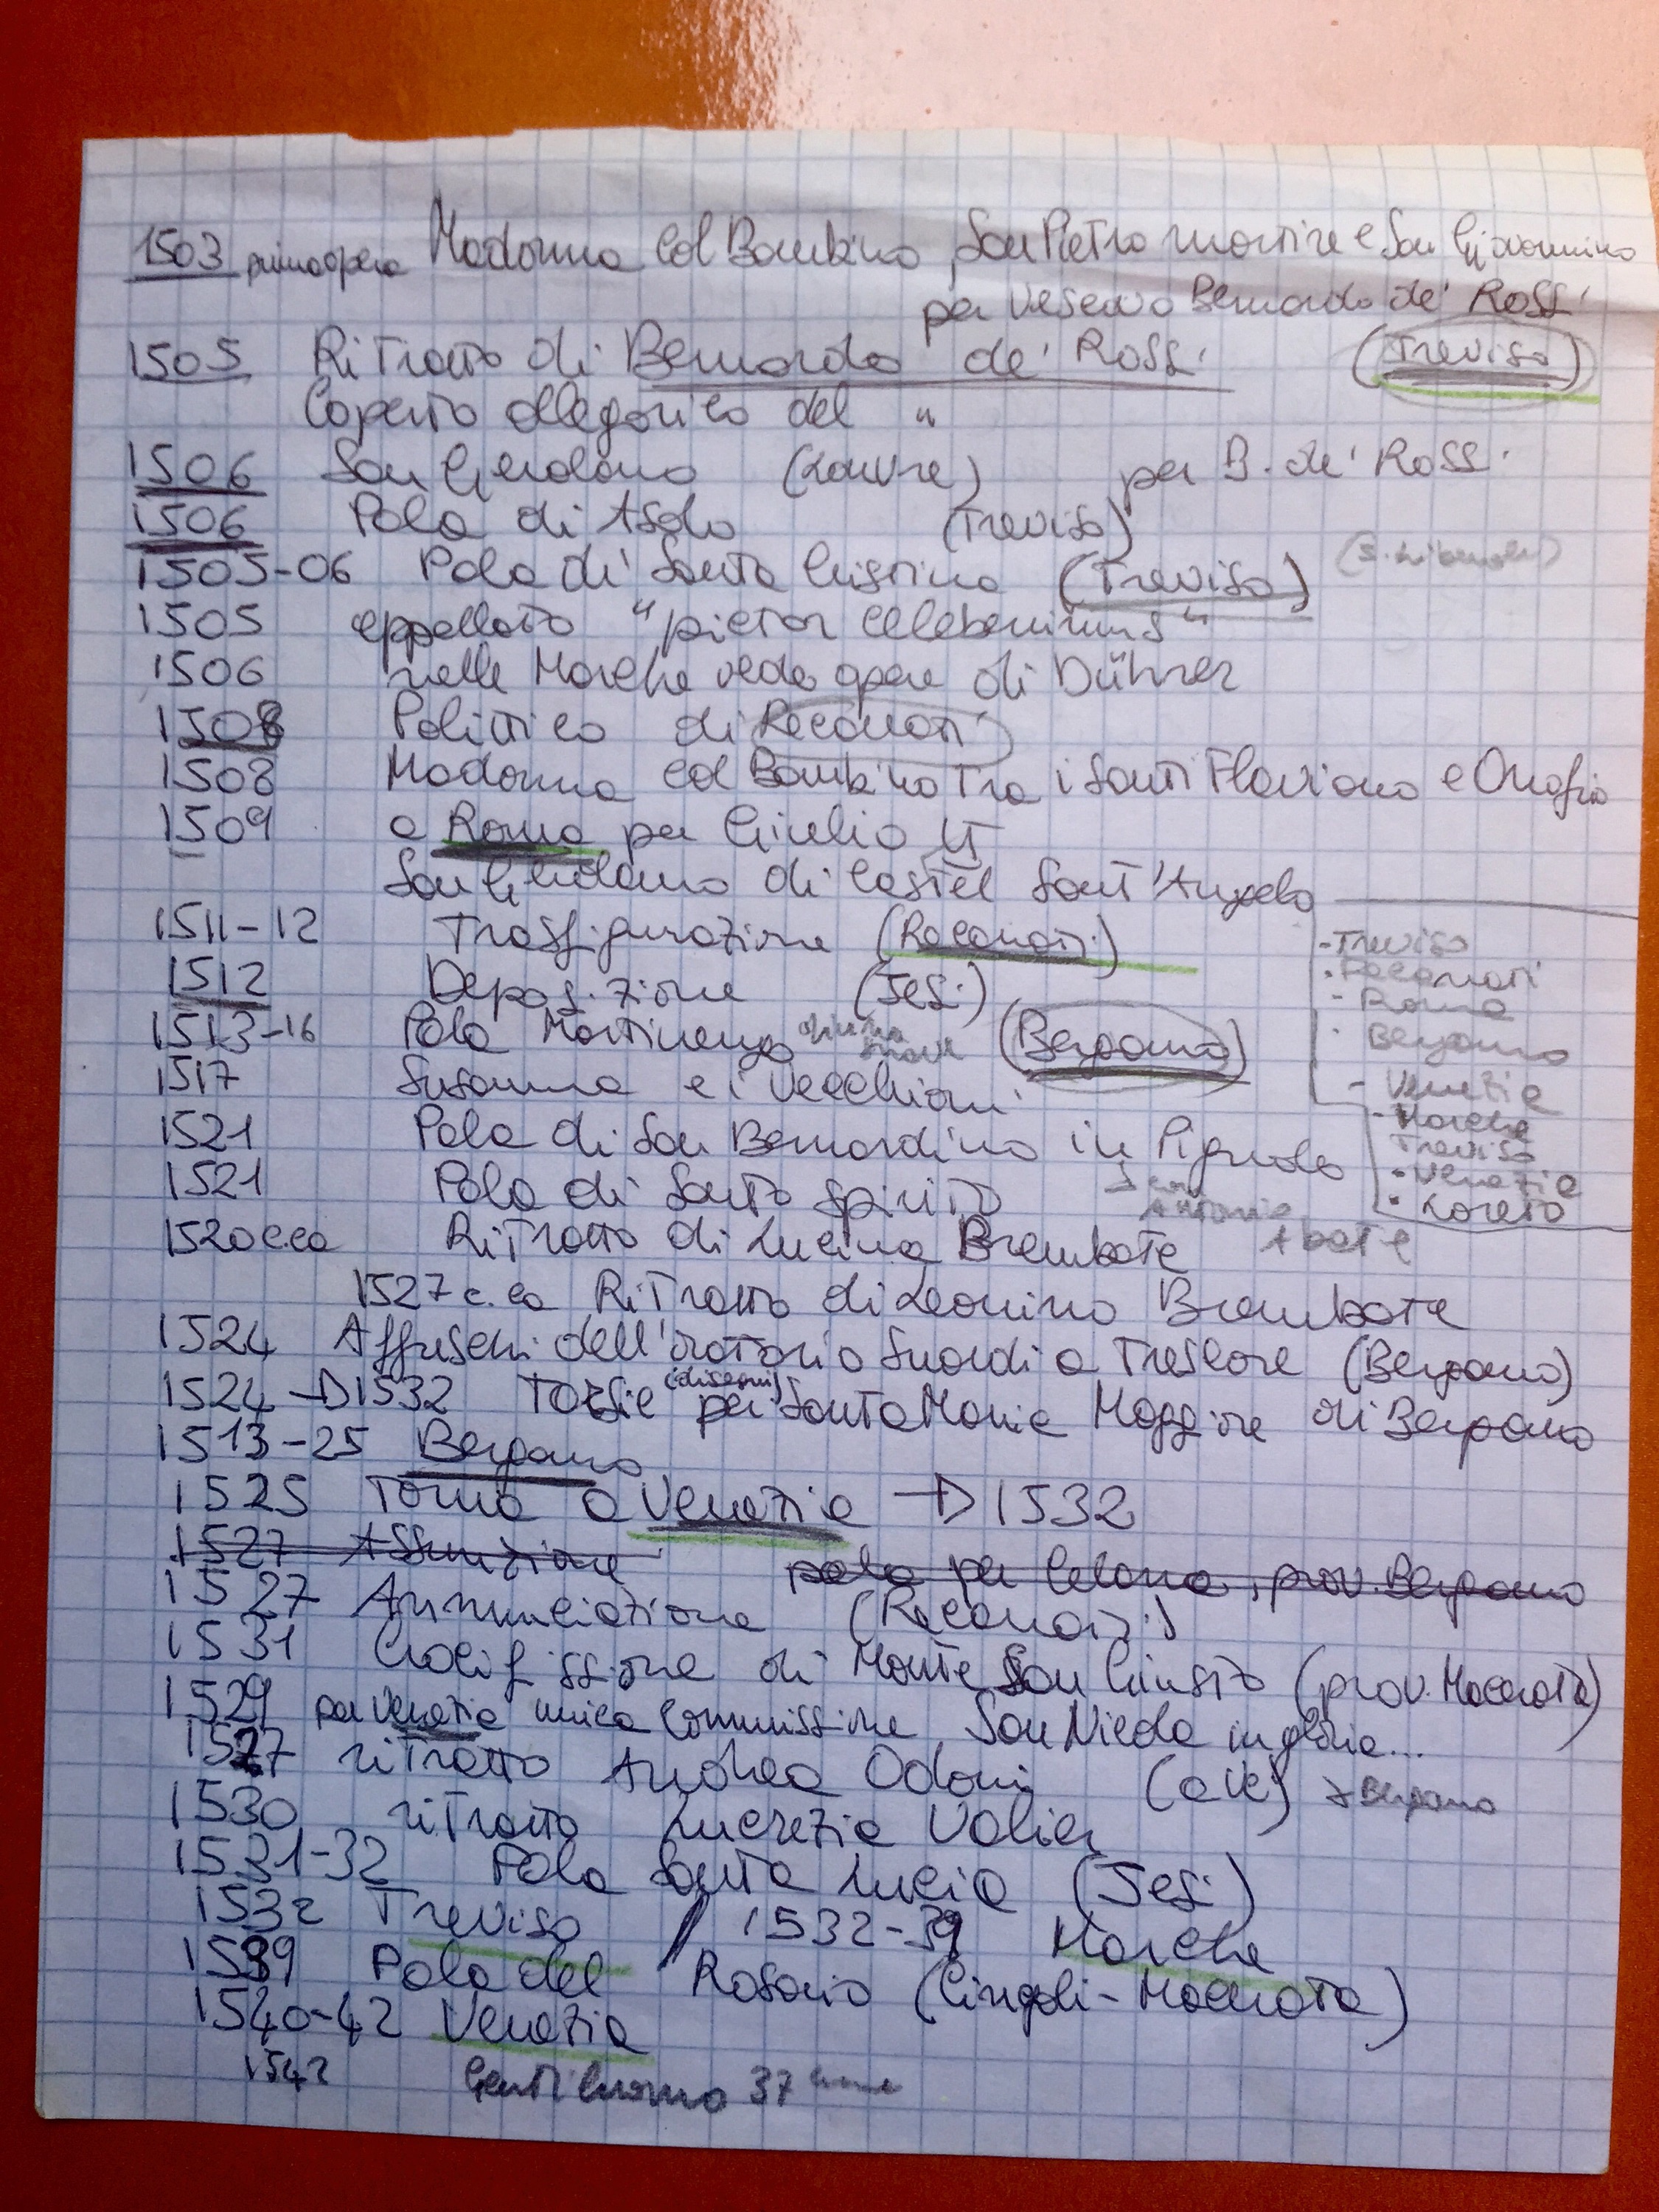 1503 prima opera Madonna col Bambino, San Pietro martire e San Giovannino
per vescovo Bernardo de' Rossi
1505 Ritratto di Bernardo de' Rossi (Treviso)
Coperto allegorico del "
1506 San Gerolamo (Louvre) per B. de' Rossi
1506 Pala di Asolo (Treviso)
1505-06 Pala di Santa Cristina (Treviso)
1505 appellato "pictor celeberrimus"
1506 nelle Marche vede opere di Dührer
1508 Polittico di Recanati
1508 Madonna col Bambino tra i Santi Flaviano e Onofrio
1509 a Roma per Giulio II
San Gerolamo di Castel Sant'Angelo
1511-12 Trasfigurazione (Recanati)
1512 Deposizione (Jesi)
1513-16 Pala Martinengo (Bergamo)
1517 Susanna e i Vecchioni
1521 Pala di San Bernardino in Pignolo
1521 Pala di Santo Spirito
Antonio
Abate
1520 c.ca Ritratto di Lucina Brembate
1527 c.ca Ritratto di Leonino Brembate
- Treviso
- Recanati
- Roma
- Bergamo
- Venezia
- Marche
Treviso
- Venezia
- Loreto
1524 Affreschi dell'oratorio Suardi a Trescore (Bergamo)
1524 → 1532 Tarsie (disegni) per Santa Maria Maggiore di Bergamo
1513-25 Bergamo
1525 Torna a Venezia → 1532
1527 Assunzione pala per Celana, prov. Bergamo
1527 Annunciazione (Recanati)
1531 Crocifissione di Monte San Giusto (prov. Macerata)
1529 per Venezia unica commissione San Nicola in gloria...
1527 ritratto Andrea Odoni (a Ve) → Bergamo
1530 ritratto Lucrezia Valier
1531-32 Pala Santa Lucia (Jesi)
1532 Treviso / 1532-39 Marche
1539 Pala del Rosario (Cingoli - Macerata)
1540-42 Venezia
1542 Gentiluomo 37enne